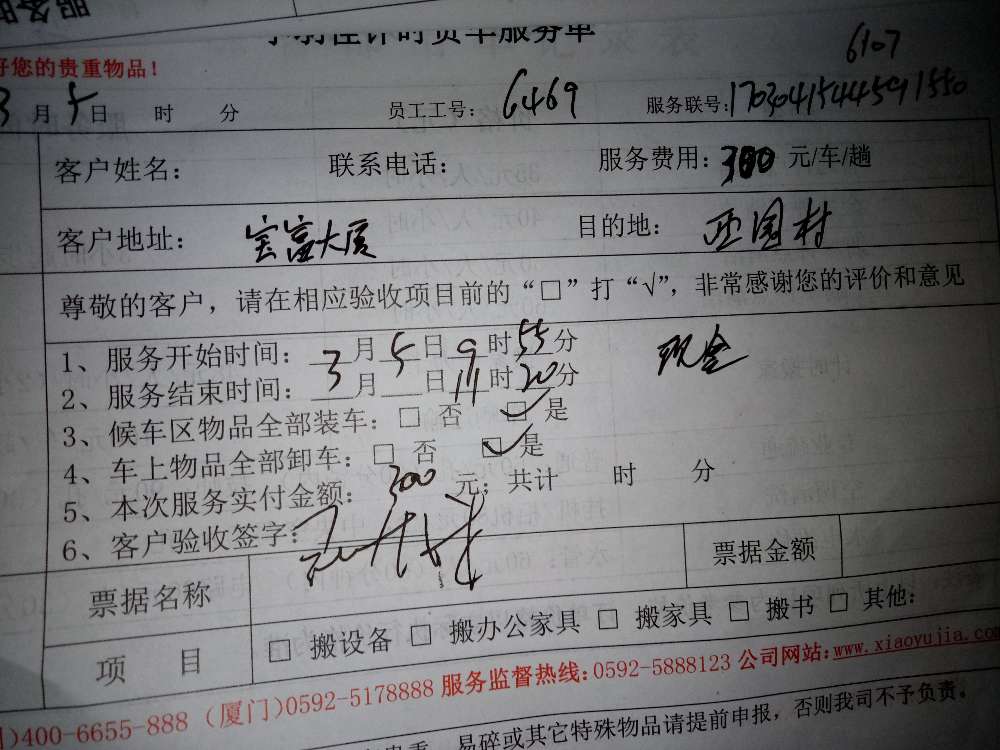 时货车服务单
好您的贵重物品！
6107
3月5日 时 分 员工工号：6469 服务联号：170304154459 1550
客户姓名： 联系电话： 服务费用：300元/车/趟
客户地址：宝富大厦 目的地：
尊敬的客户，请在相应验收项目前的“□”打“√”，非常感谢您的评价和意见
1、服务开始时间：3月5日9时55分 现金
2、服务结束时间：3月 日11时20分
3、候车区物品全部装车：□ 否 ☑ 是
4、车上物品全部卸车：□ 否 ☑ 是
5、本次服务实付金额：300元；共计 时 分
6、客户验收签字：
票据名称 票据金额
项 目 □ 搬设备 □ 搬办公家具 □ 搬家具 □ 搬书 □ 其他：
)400-6655-888（厦门)0592-5178888 服务监督热线:0592-5888123 公司网站:www.xiaoyujia.com
易碎或其它特殊物品请提前申报，否则我司不予负责。